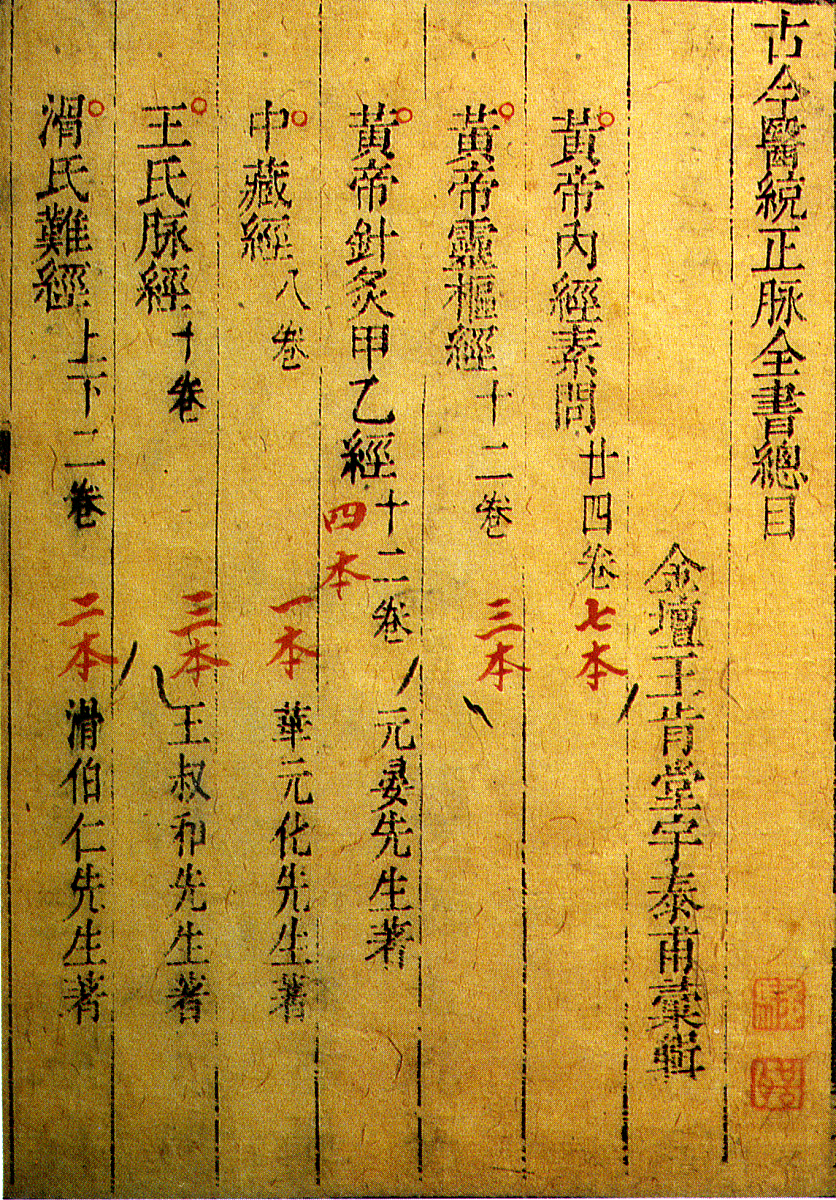 古今醫統正脉全書總目
金壇王肯堂宇泰甫彙輯
黃帝內經素問廿四卷七本
黃帝靈樞經十二卷三本
黃帝針炙甲乙經十二卷四本元晏先生著
中藏經八卷一本華元化先生著
王氏脉經十卷三本王叔和先生著
滑氏難經上下二卷二本滑伯仁先生著